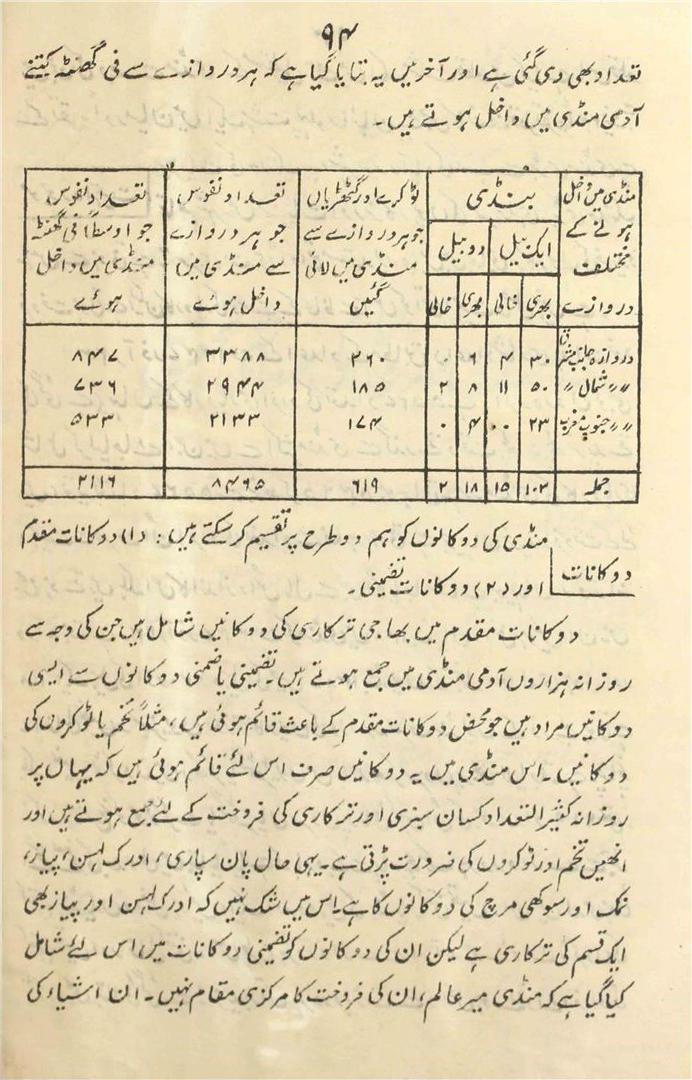 ۹۴
تعداد بھی دی گئی ہے اور آخر میں یہ بتایا گیا ہے کہ ہر دروازے سے فی گھنٹہ کتنے
آدمی منڈی میں داخل ہوتے ہیں۔
منڈی میں داخل ہونے کے مختلف دروازے | بنڈی | ٹوکرے اور گٹھڑیاں جو ہر دروازے سے منڈی میں لائی گئیں | تعداد نفوس جو ہر دروازے سے منڈی میں داخل ہوئے | تعداد نفوس جو اوسطاً فی گھنٹہ منڈی میں داخل ہوئے
ایک بیل | دو بیل
بھری | خالی | بھری | خالی
دروازہ جانب مشرق | ۳۰ | ۴ | ۶ | ۰ | ۲۶۰ | ۳۳۸۸ | ۸۴۷
〃 〃 شمال 〃 | ۵۰ | ۱۱ | ۸ | ۲ | ۱۸۵ | ۲۹۴۴ | ۷۳۶
〃 〃 جنوب مغرب | ۲۳ | ۰۰ | ۴ | ۰ | ۱۷۴ | ۲۱۳۳ | ۵۳۳
جملہ | ۱۰۳ | ۱۵ | ۱۸ | ۲ | ۶۱۹ | ۸۴۶۵ | ۲۱۱۶
دوکانات
منڈی کی دوکانوں کو ہم دو طرح پر تقسیم کر سکتے ہیں: (۱) دوکانات مقدم
اور (۲) دوکانات تضمینی۔
دوکانات مقدم میں بھاجی ترکاری کی دوکانیں شامل ہیں جن کی وجہ سے
روزانہ ہزاروں آدمی منڈی میں جمع ہوتے ہیں۔ تضمینی یا ضمنی دوکانوں سے ایسی
دوکانیں مراد ہیں جو محض دوکانات مقدم کے باعث قائم ہوئی ہیں، مثلاً تخم یا ٹوکروں کی
دوکانیں۔ اس منڈی میں یہ دوکانیں صرف اس لئے قائم ہوئی ہیں کہ یہاں پر
روزانہ کثیر التعداد کسان سبزی اور ترکاری کی فروخت کے لئے جمع ہوتے ہیں اور
انھیں تخم اور ٹوکروں کی ضرورت پڑتی ہے۔ یہی حال پان سپاری، ادرک لہسن، پیاز،
نمک اور سوکھی مرچ کی دوکانوں کا ہے۔ اس میں شک نہیں کہ ادرک لہسن اور پیاز بھی
ایک قسم کی ترکاری ہے لیکن ان کی دوکانوں کو تضمینی دوکانات میں اس لئے شامل
کیا گیا ہے کہ منڈی میر عالم، ان کی فروخت کا مرکزی مقام نہیں۔ ان اشیاء کی